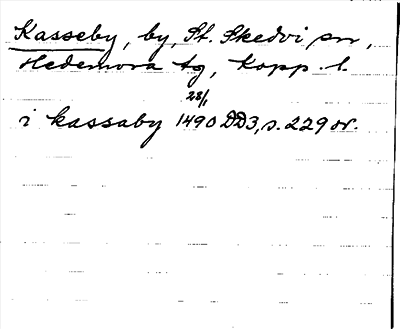 Kasseby, by, St. Skedvi sn,
Hedemora tg, Kopp. l.
28/1
i kassaby 1490 DD3, s. 229 or.